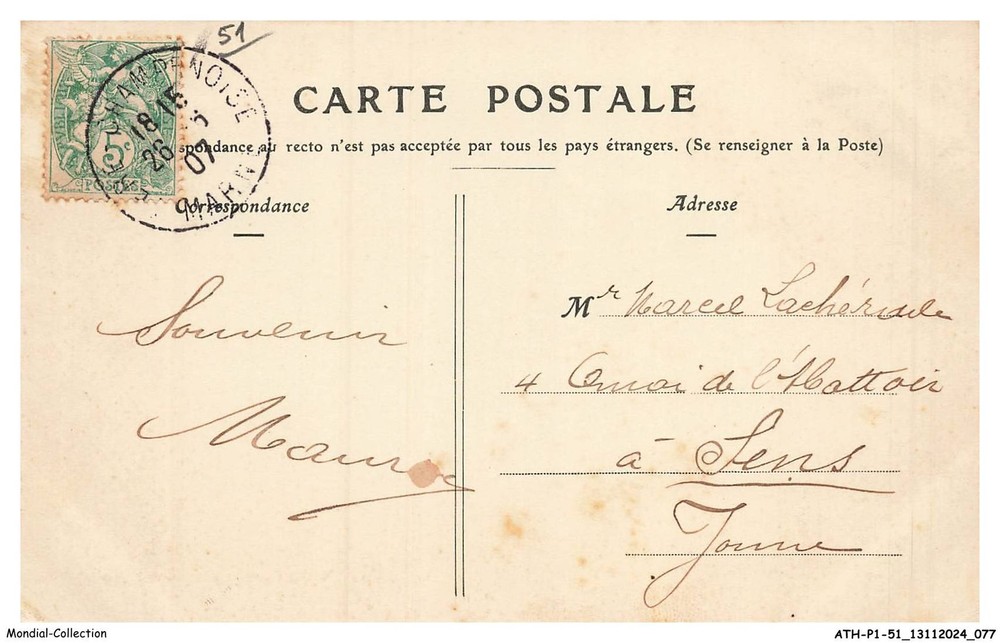 51
CARTE POSTALE
spondance au recto n'est pas acceptée par tous les pays étrangers. (Se renseigner à la Poste)
CHAMPENOISE
18 15
26
07
MARNE
5c
POSTES
Correspondance
Adresse
Souvenir
Mr Marcel
4 Quai de l'Abattoir
à Sens
Yonne
Mondial-Collection
ATH-P1-51_13112024_077